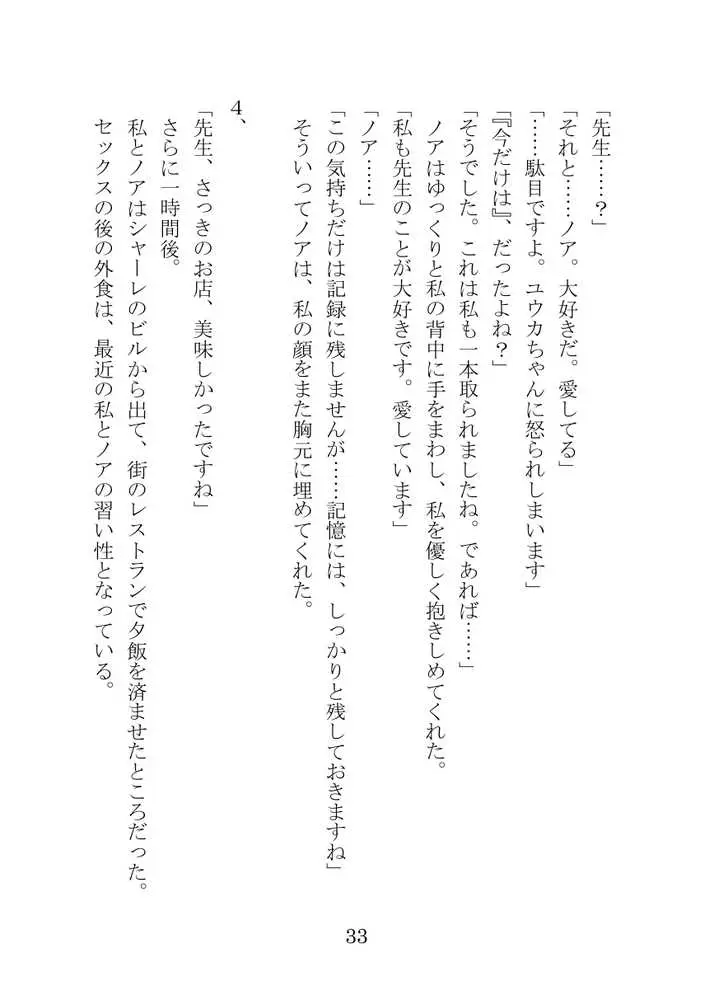 「先生……？」
「それと……ノア。大好きだ。愛してる」
「……駄目ですよ。ユウカちゃんに怒られしまいます」
「『今だけは』、だったよね？」
「そうでした。これは私も一本取られましたね。であれば……」
ノアはゆっくりと私の背中に手をまわし、私を優しく抱きしめてくれた。
「私も先生のことが大好きです。愛しています」
「ノア……」
「この気持ちだけは記録に残しませんが……記憶には、しっかりと残しておきますね」
そういってノアは、私の顔をまた胸元に埋めてくれた。
4、
「先生、さっきのお店、美味しかったですね」
さらに一時間後。
私とノアはシャーレのビルから出て、街のレストランで夕飯を済ませたところだった。
セックスの後の外食は、最近の私とノアの習い性となっている。
33